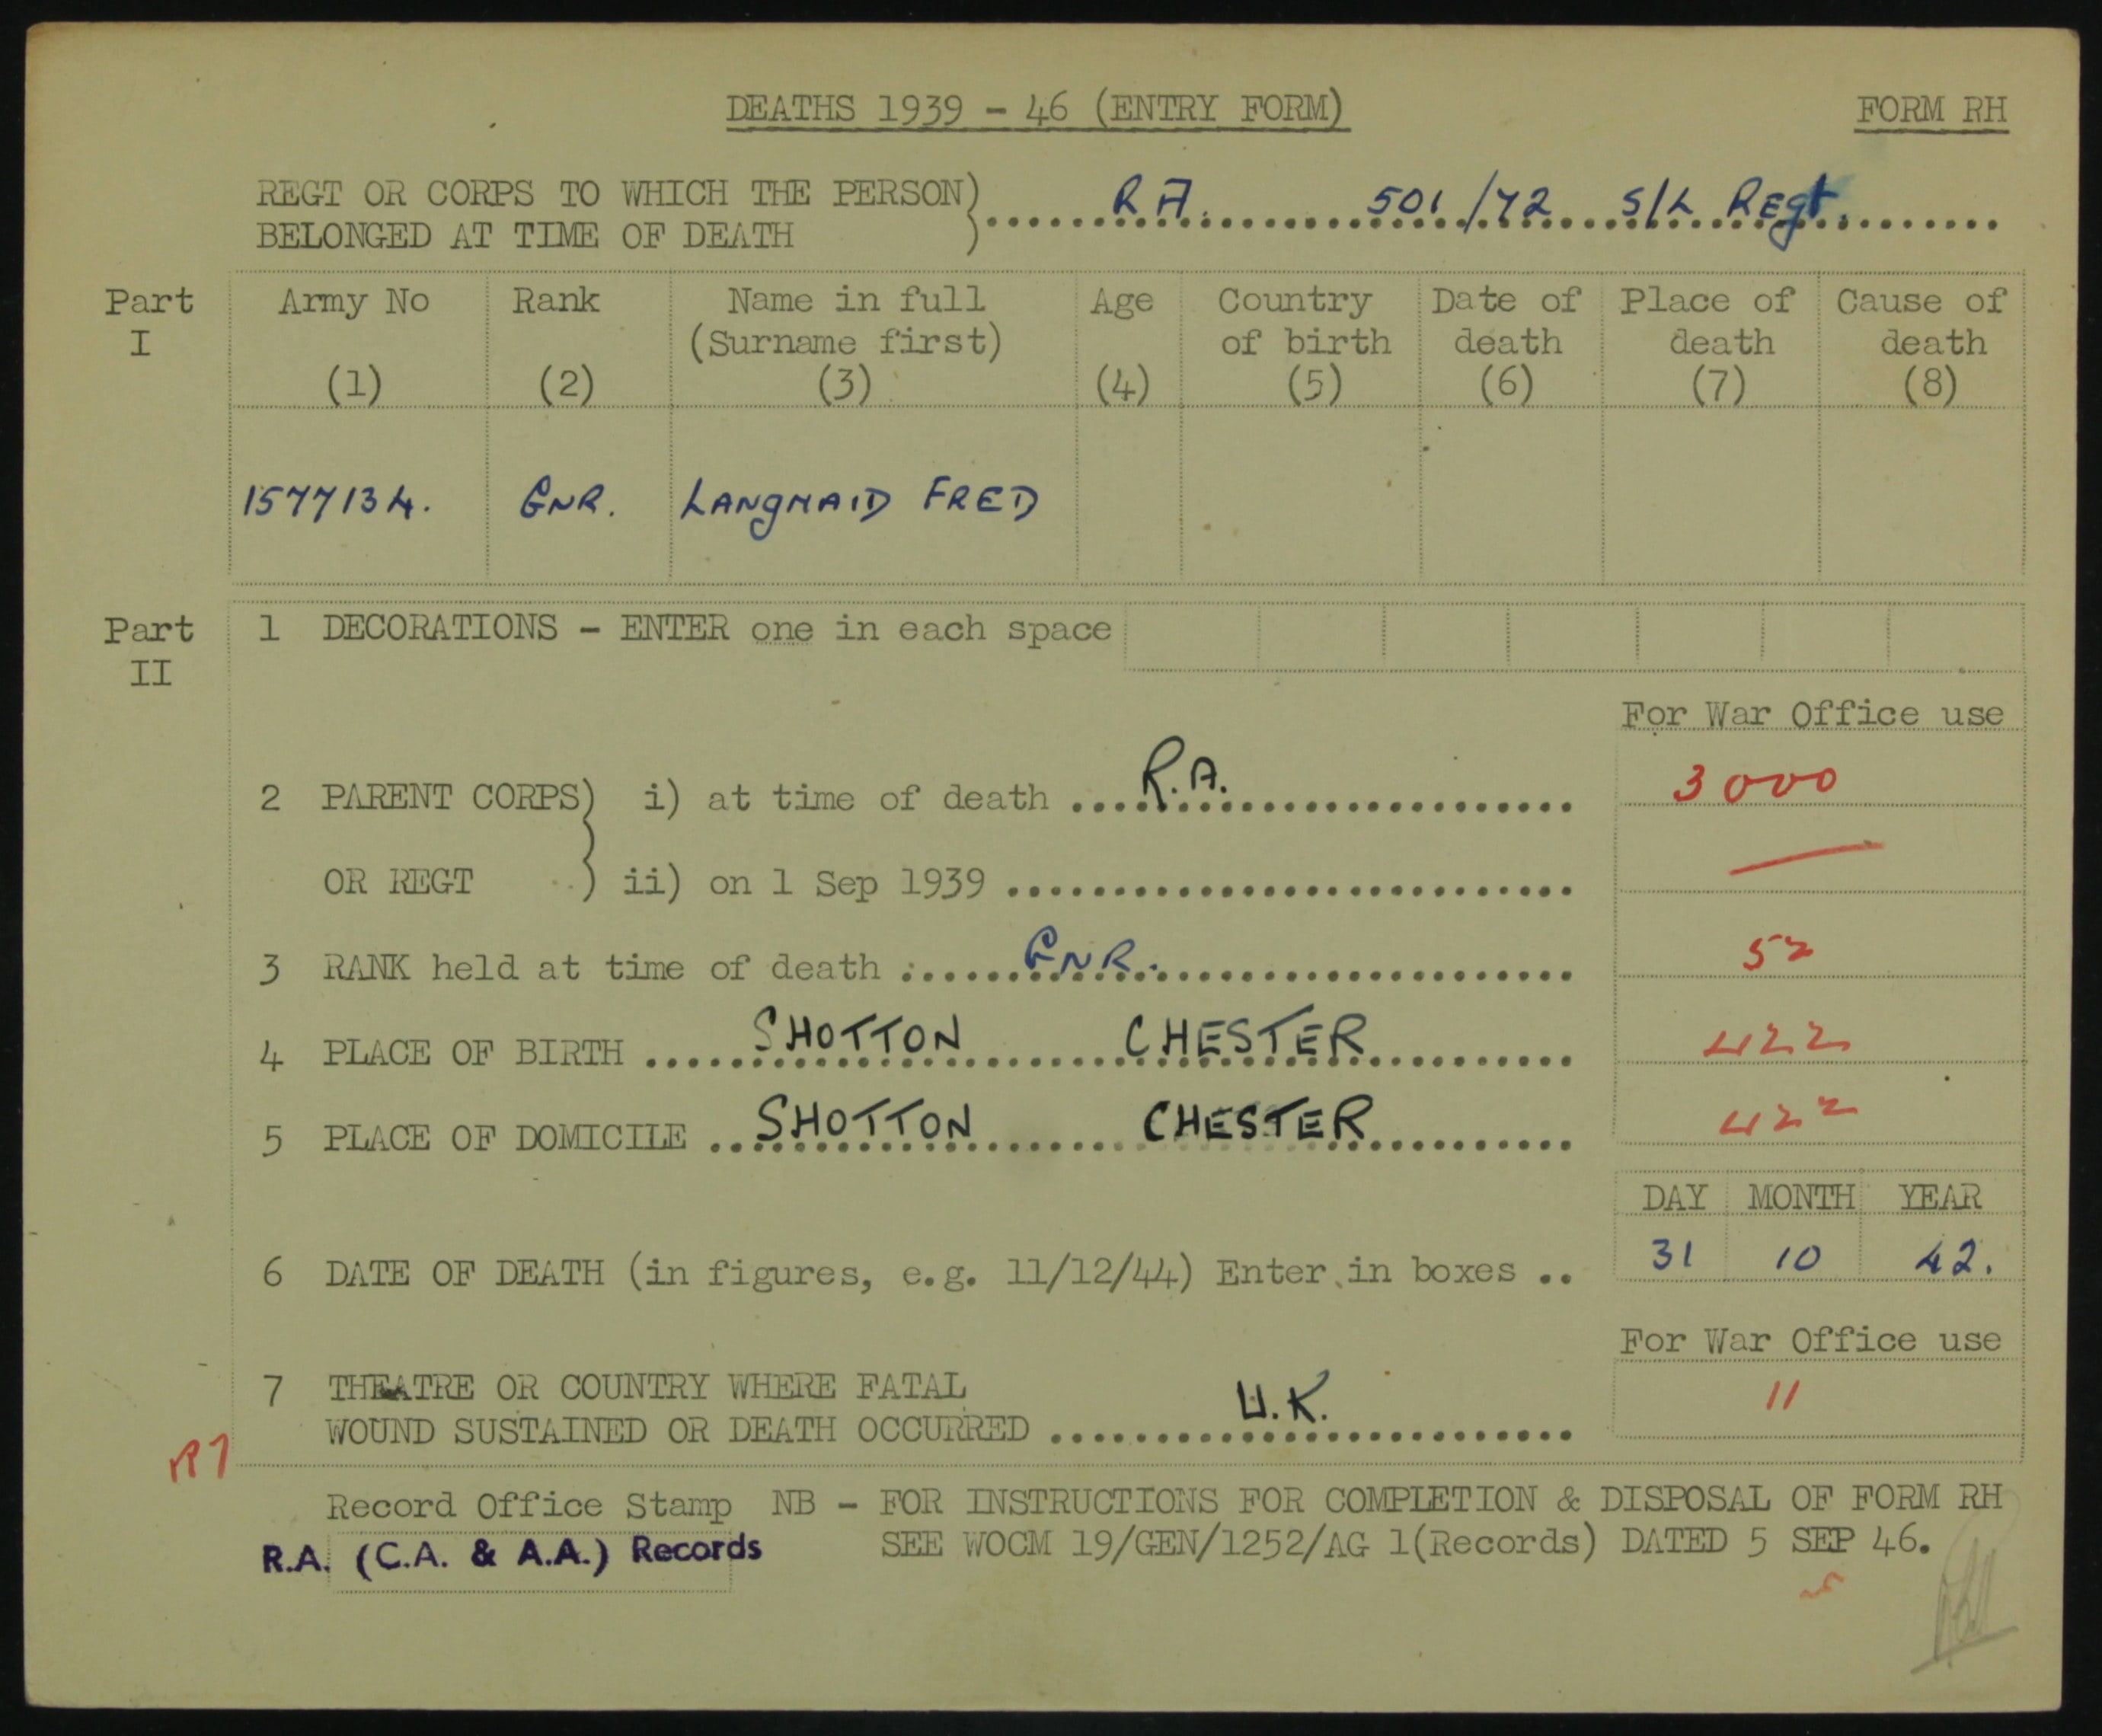 DEATHS 1939 - 46 (ENTRY FORM)
FORM RH
REGT OR CORPS TO WHICH THE PERSON) R A. 501/72 S/L Regt.
BELONGED AT TIME OF DEATH )
Part I
Army No (1)
Rank (2)
Name in full (Surname first) (3)
Age (4)
Country of birth (5)
Date of death (6)
Place of death (7)
Cause of death (8)
1577134. GNR. LANGMAID FRED
Part II
1 DECORATIONS - ENTER one in each space
For War Office use
2 PARENT CORPS) i) at time of death R.A. 3000
OR REGT ) ii) on 1 Sep 1939
3 RANK held at time of death GNR. 52
4 PLACE OF BIRTH SHOTTON CHESTER 422
5 PLACE OF DOMICILE SHOTTON CHESTER 422
DAY MONTH YEAR
6 DATE OF DEATH (in figures, e.g. 11/12/44) Enter in boxes .. 31 10 42.
For War Office use
7 THEATRE OR COUNTRY WHERE FATAL
WOUND SUSTAINED OR DEATH OCCURRED U.K. 11
Record Office Stamp NB - FOR INSTRUCTIONS FOR COMPLETION & DISPOSAL OF FORM RH
SEE WOCM 19/GEN/1252/AG 1(Records) DATED 5 SEP 46.
R.A. (C.A. & A.A.) Records